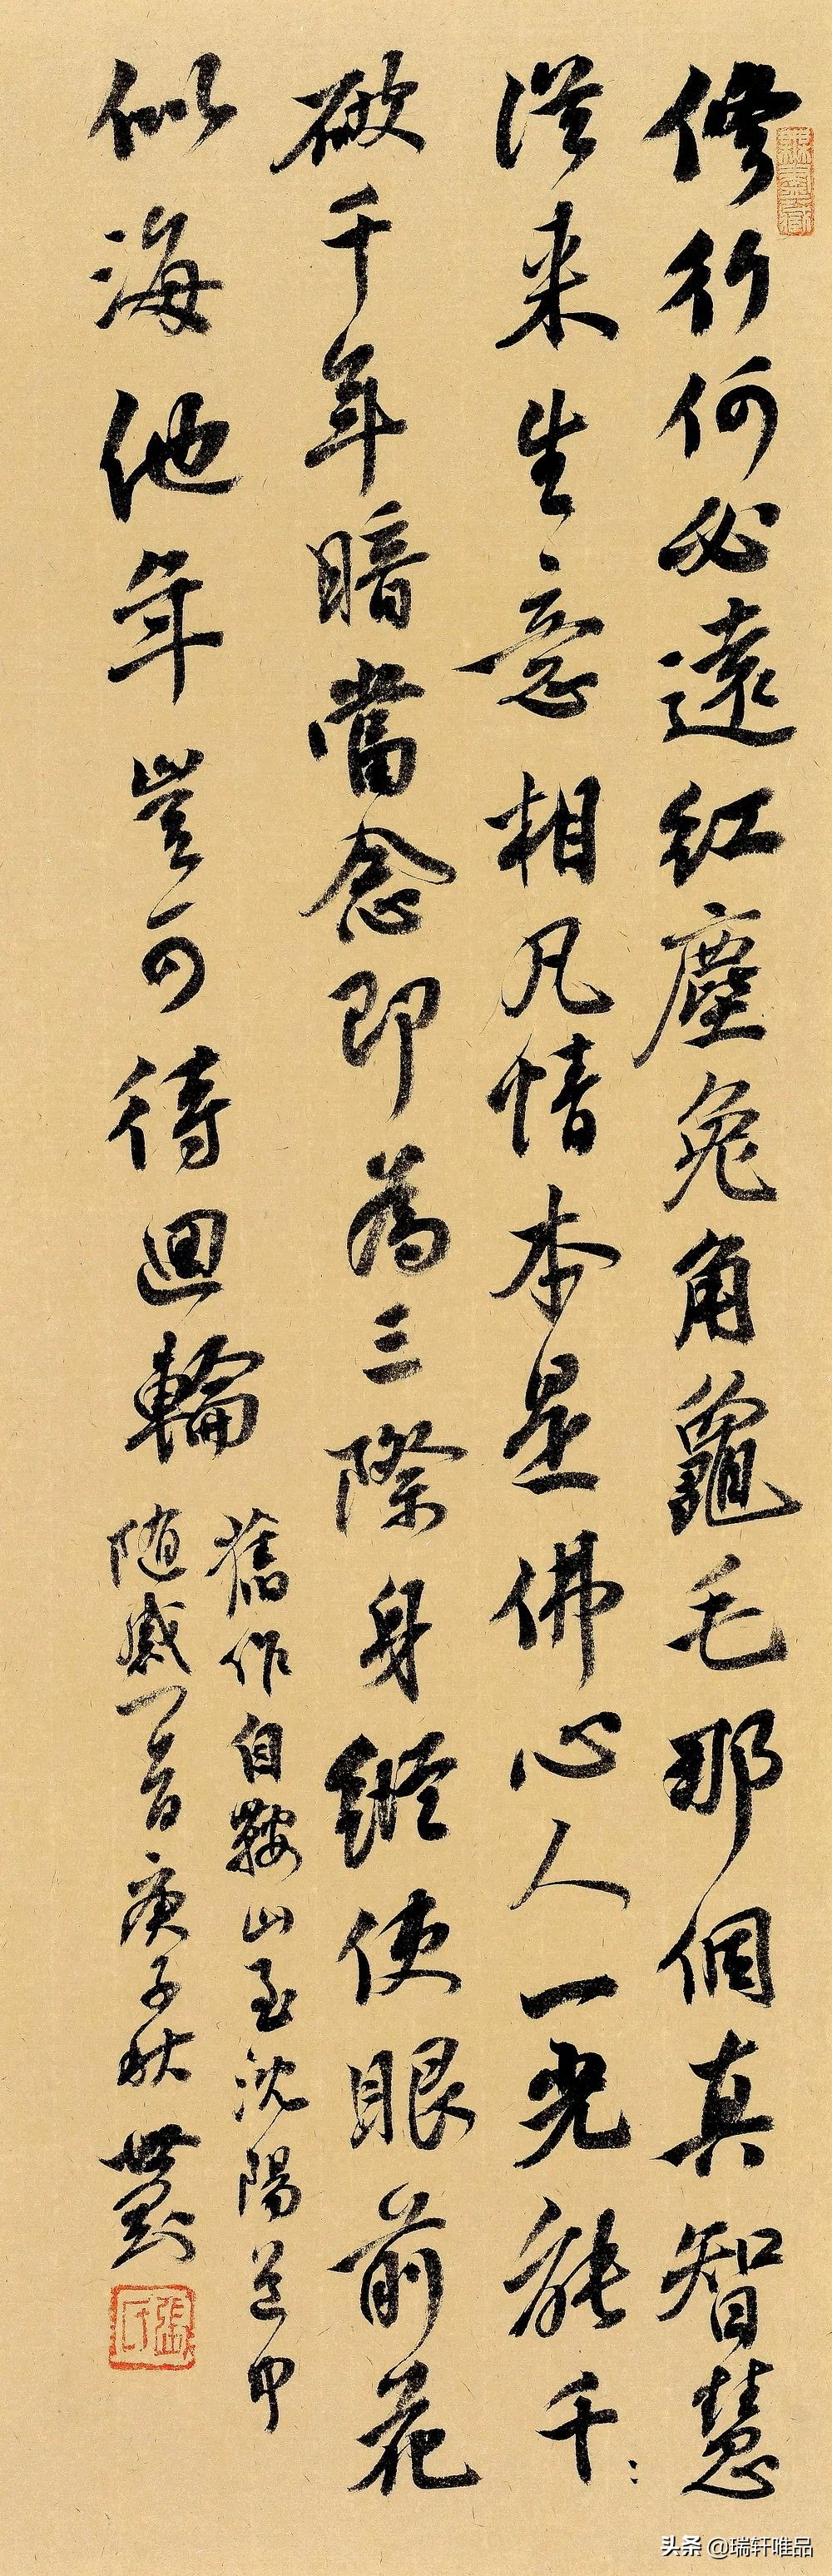 無盡藏
修行何必遠紅塵兔角龜毛那個真智慧
從来生意相凡情本是佛心人一光能千
破千年暗當念即為三際身縱使眼前花
似海他年豈可待迴輪
舊作自鞍山至沈陽道中
随感一首庚子秋世剛
头条 @瑞轩唯品